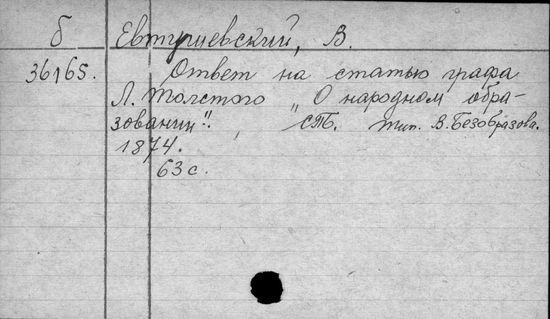 б Евтушевский, В.
36165. Ответ на статью графа
Л. Толстого „О народном обра-
зовании“. СПб. тип. В. Безобразова.
1874.
63 с.